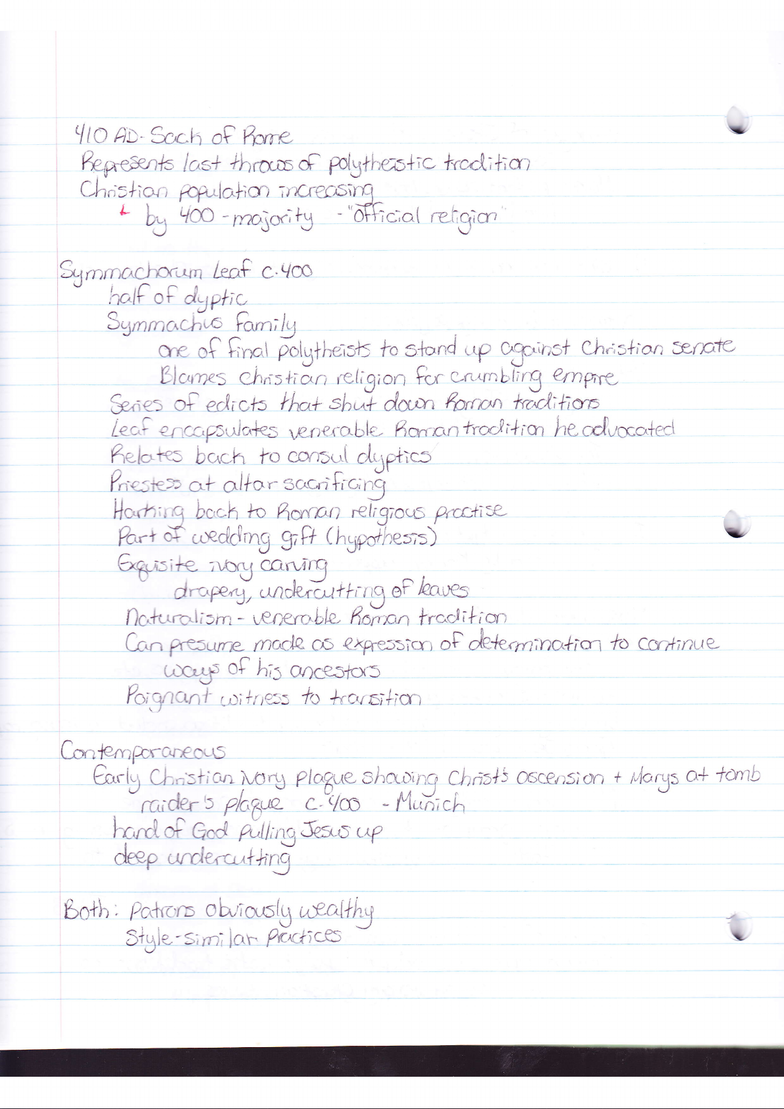 410 AD - Sack of Rome
Represents last throws of polytheistic tradition
Christian population increasing
↳ by 400 - majority - "official religion"
Symmachorum Leaf c. 400
half of dyptic
Symmachus family
one of final polytheists to stand up against Christian senate
Blames Christian religion for crumbling empire
Series of edicts that shut down Roman traditions
Leaf encapsulates venerable Roman tradition he advocated
Relates back to consul dyptics
Priestess at altar sacrificing
Harking back to Roman religious practise
Part of wedding gift (hypothesis)
Exquisite ivory carving
drapery, undercutting of leaves
Naturalism - venerable Roman tradition
Can presume made as expression of determination to continue
ways of his ancestors
Poignant witness to transition
Contemporaneous
Early Christian ivory plaque showing Christ's ascension + Marys at tomb
raider's plaque c. 400 - Munich
hand of God pulling Jesus up
deep undercutting
Both: Patrons obviously wealthy
Style - similar practices